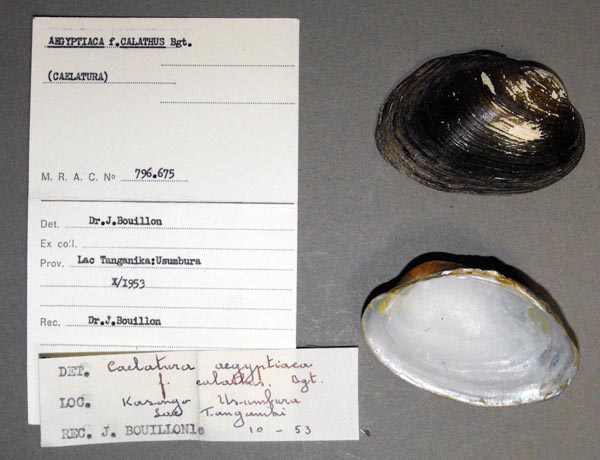 AEGYPTIACA f.CALATHUS Bgt.
(CAELATURA)
M. R. A. C. No 796.675
Det. Dr.J.Bouillon
Ex coll.
Prov. Lac Tanganika:Usumbura
X/1953
Rec. Dr.J.Bouillon
DET. Caelatura aegyptiaca
f. calathus. Bgt.
LOC. Kasongo Usumbura
Lac Tanganika
REC. J. BOUILLON le 10 - 53